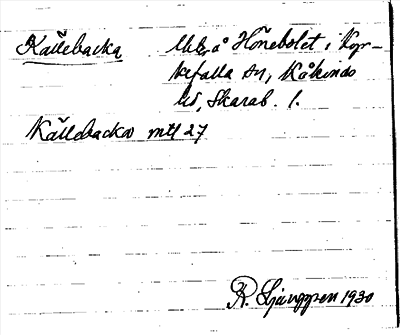 Källebacka Utg. å Hönebolet i Kyr-
kefalla sn, Kåkinds
hd, Skarab. l.
Källebacka mtl 27
R. Ljunggren 1930